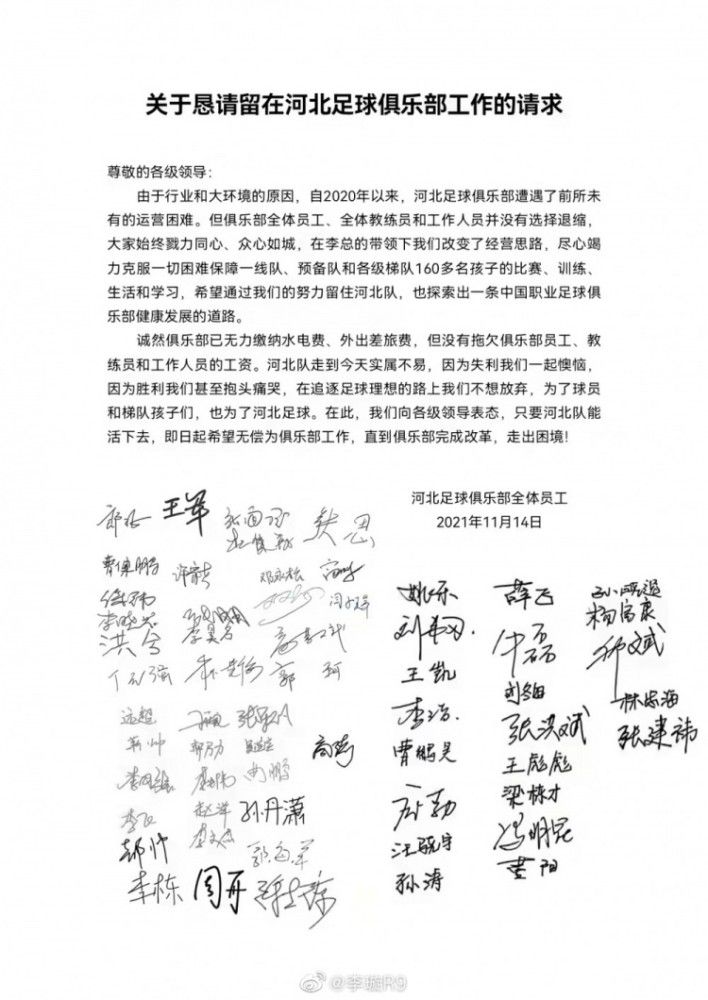 关于恳请留在河北足球俱乐部工作的请求
尊敬的各级领导：
由于行业和大环境的原因，自2020年以来，河北足球俱乐部遭遇了前所未
有的运营困难。但俱乐部全体员工、全体教练员和工作人员并没有选择退缩，
大家始终戮力同心、众心如城，在李总的带领下我们改变了经营思路，尽心竭
力克服一切困难保障一线队、预备队和各级梯队160多名孩子的比赛、训练、
生活和学习，希望通过我们的努力留住河北队，也探索出一条中国职业足球俱
乐部健康发展的道路。
诚然俱乐部已无力缴纳水电费、外出差旅费，但没有拖欠俱乐部员工、教
练员和工作人员的工资。河北队走到今天实属不易，因为失利我们一起懊恼，
因为胜利我们甚至抱头痛哭，在追逐足球理想的路上我们不想放弃，为了球员
和梯队孩子们，也为了河北足球。在此，我们向各级领导表态，只要河北队能
活下去，即日起希望无偿为俱乐部工作，直到俱乐部完成改革，走出困境！
河北足球俱乐部全体员工
2021年11月14日
王军
曹保鹏
李晓芯
洪兮
郭 珂
远超
高嵩
孙丹潇
李栋 周开
姚乐
王凯
李浩
曹鹏昊
汪骁宇
孙涛
薛飞
牛磊
张洪斌
王彪彪
梁栋才
冯明昆
黄阳
杨富康
林忠海
张建祎
@李璇R9